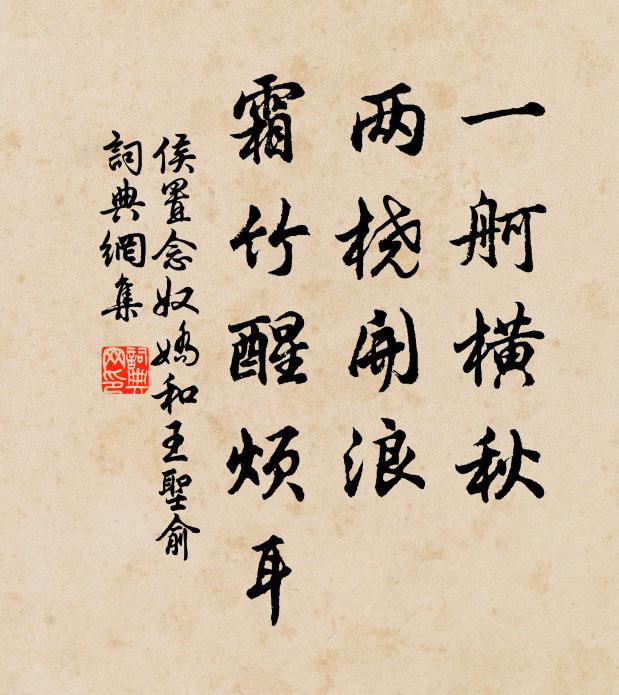 一舸横秋
两桡开浪
霜竹醒烦耳
侯置念奴嬌和王聖俞
詞典網集
詞典網印